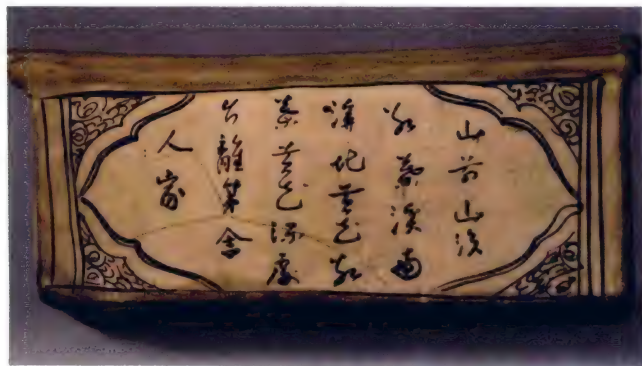 山前山後
紅葉溪南
溪北黃花紅
葉黃花深處
竹籬茅舍
人家